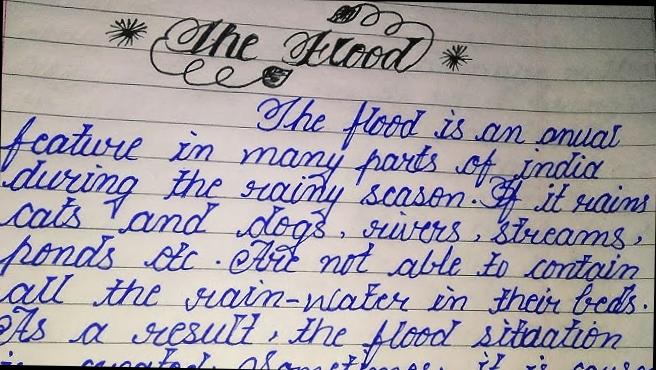 The Flood
The flood is an anual
feature in many parts of india
during the rainy season. If it rains
cats and dogs, rivers, streams,
ponds etc. Are not able to contain
all the rain-water in their beds.
As a result, the flood sitaation
is created. Sometimes, it is